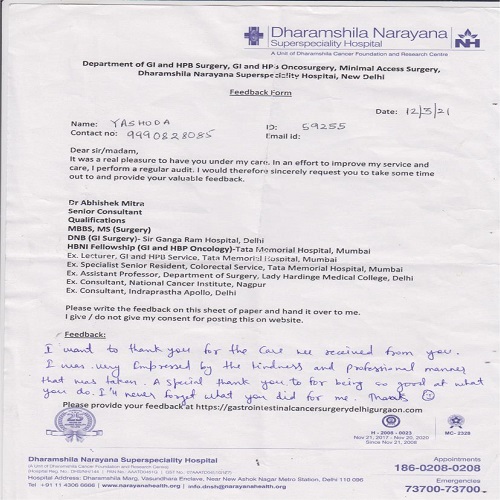 Dharamshila Narayana
Superspeciality Hospital
NH
A Unit of Dharamshila Cancer Foundation and Research Centre
Department of GI and HPB Surgery, GI and HPB Oncosurgery, Minimal Access Surgery,
Dharamshila Narayana Superspeciality Hospital, New Delhi
Feedback Form
Date: 12/3/21
Name: YASHODA
ID: 59255
Contact no: 9990828085
Email id:
Dear sir/madam,
It was a real pleasure to have you under my care. In an effort to improve my service and
care, I perform a regular audit. I would therefore sincerely request you to take some time
out to and provide your valuable feedback.
Dr Abhishek Mitra
Senior Consultant
Qualifications
MBBS, MS (Surgery)
DNB (GI Surgery)- Sir Ganga Ram Hospital, Delhi
HBNI Fellowship (GI and HBP Oncology)-Tata Memorial Hospital, Mumbai
Ex. Lecturer, GI and HPB Service, Tata Memorial Hospital, Mumbai
Ex. Specialist Senior Resident, Colorectal Service, Tata Memorial Hospital, Mumbai
Ex. Assistant Professor, Department of Surgery, Lady Hardinge Medical College, Delhi
Ex. Consultant, National Cancer Institute, Nagpur
Ex. Consultant, Indraprastha Apollo, Delhi
Please write the feedback on this sheet of paper and hand it over to me.
I give / do not give my consent for posting this on website.
Feedback:
I want to thank you for the care we received from you.
I was very Impressed by the kindness and professional manner
that was taken. A special thank you to for being so good at what
you do. I'll never forget what you did for me. Thanks
Please provide your feedback at https://gastrointestinalcancersurgerydelhigurgaon.com
25
H - 2008 - 0023
Nov 21, 2017 - Nov 20, 2020
Since Nov 21, 2008
MC- 2328
Dharamshila Narayana Superspeciality Hospital
(A Unit of Dharamshila Cancer Foundation and Research Centre)
Hospital Address: Dharamshila Marg, Vasundhara Enclave, Near New Ashok Nagar Metro Station, Delhi 110 096
Tel +91 11 4306 6666 | www.narayanahealth.org | info.dnsh@narayanahealth.org
Appointments
186-0208-0208
Emergencies
73700-73700